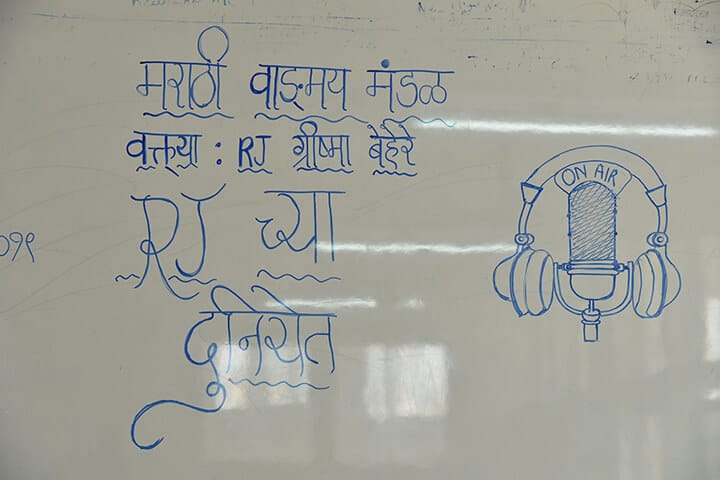 मराठी वाङ्मय मंडळ
वक्त्या : RJ ग्रीष्मा बेहेरे
RJ च्या
दुनियेत
ON AIR
०१९